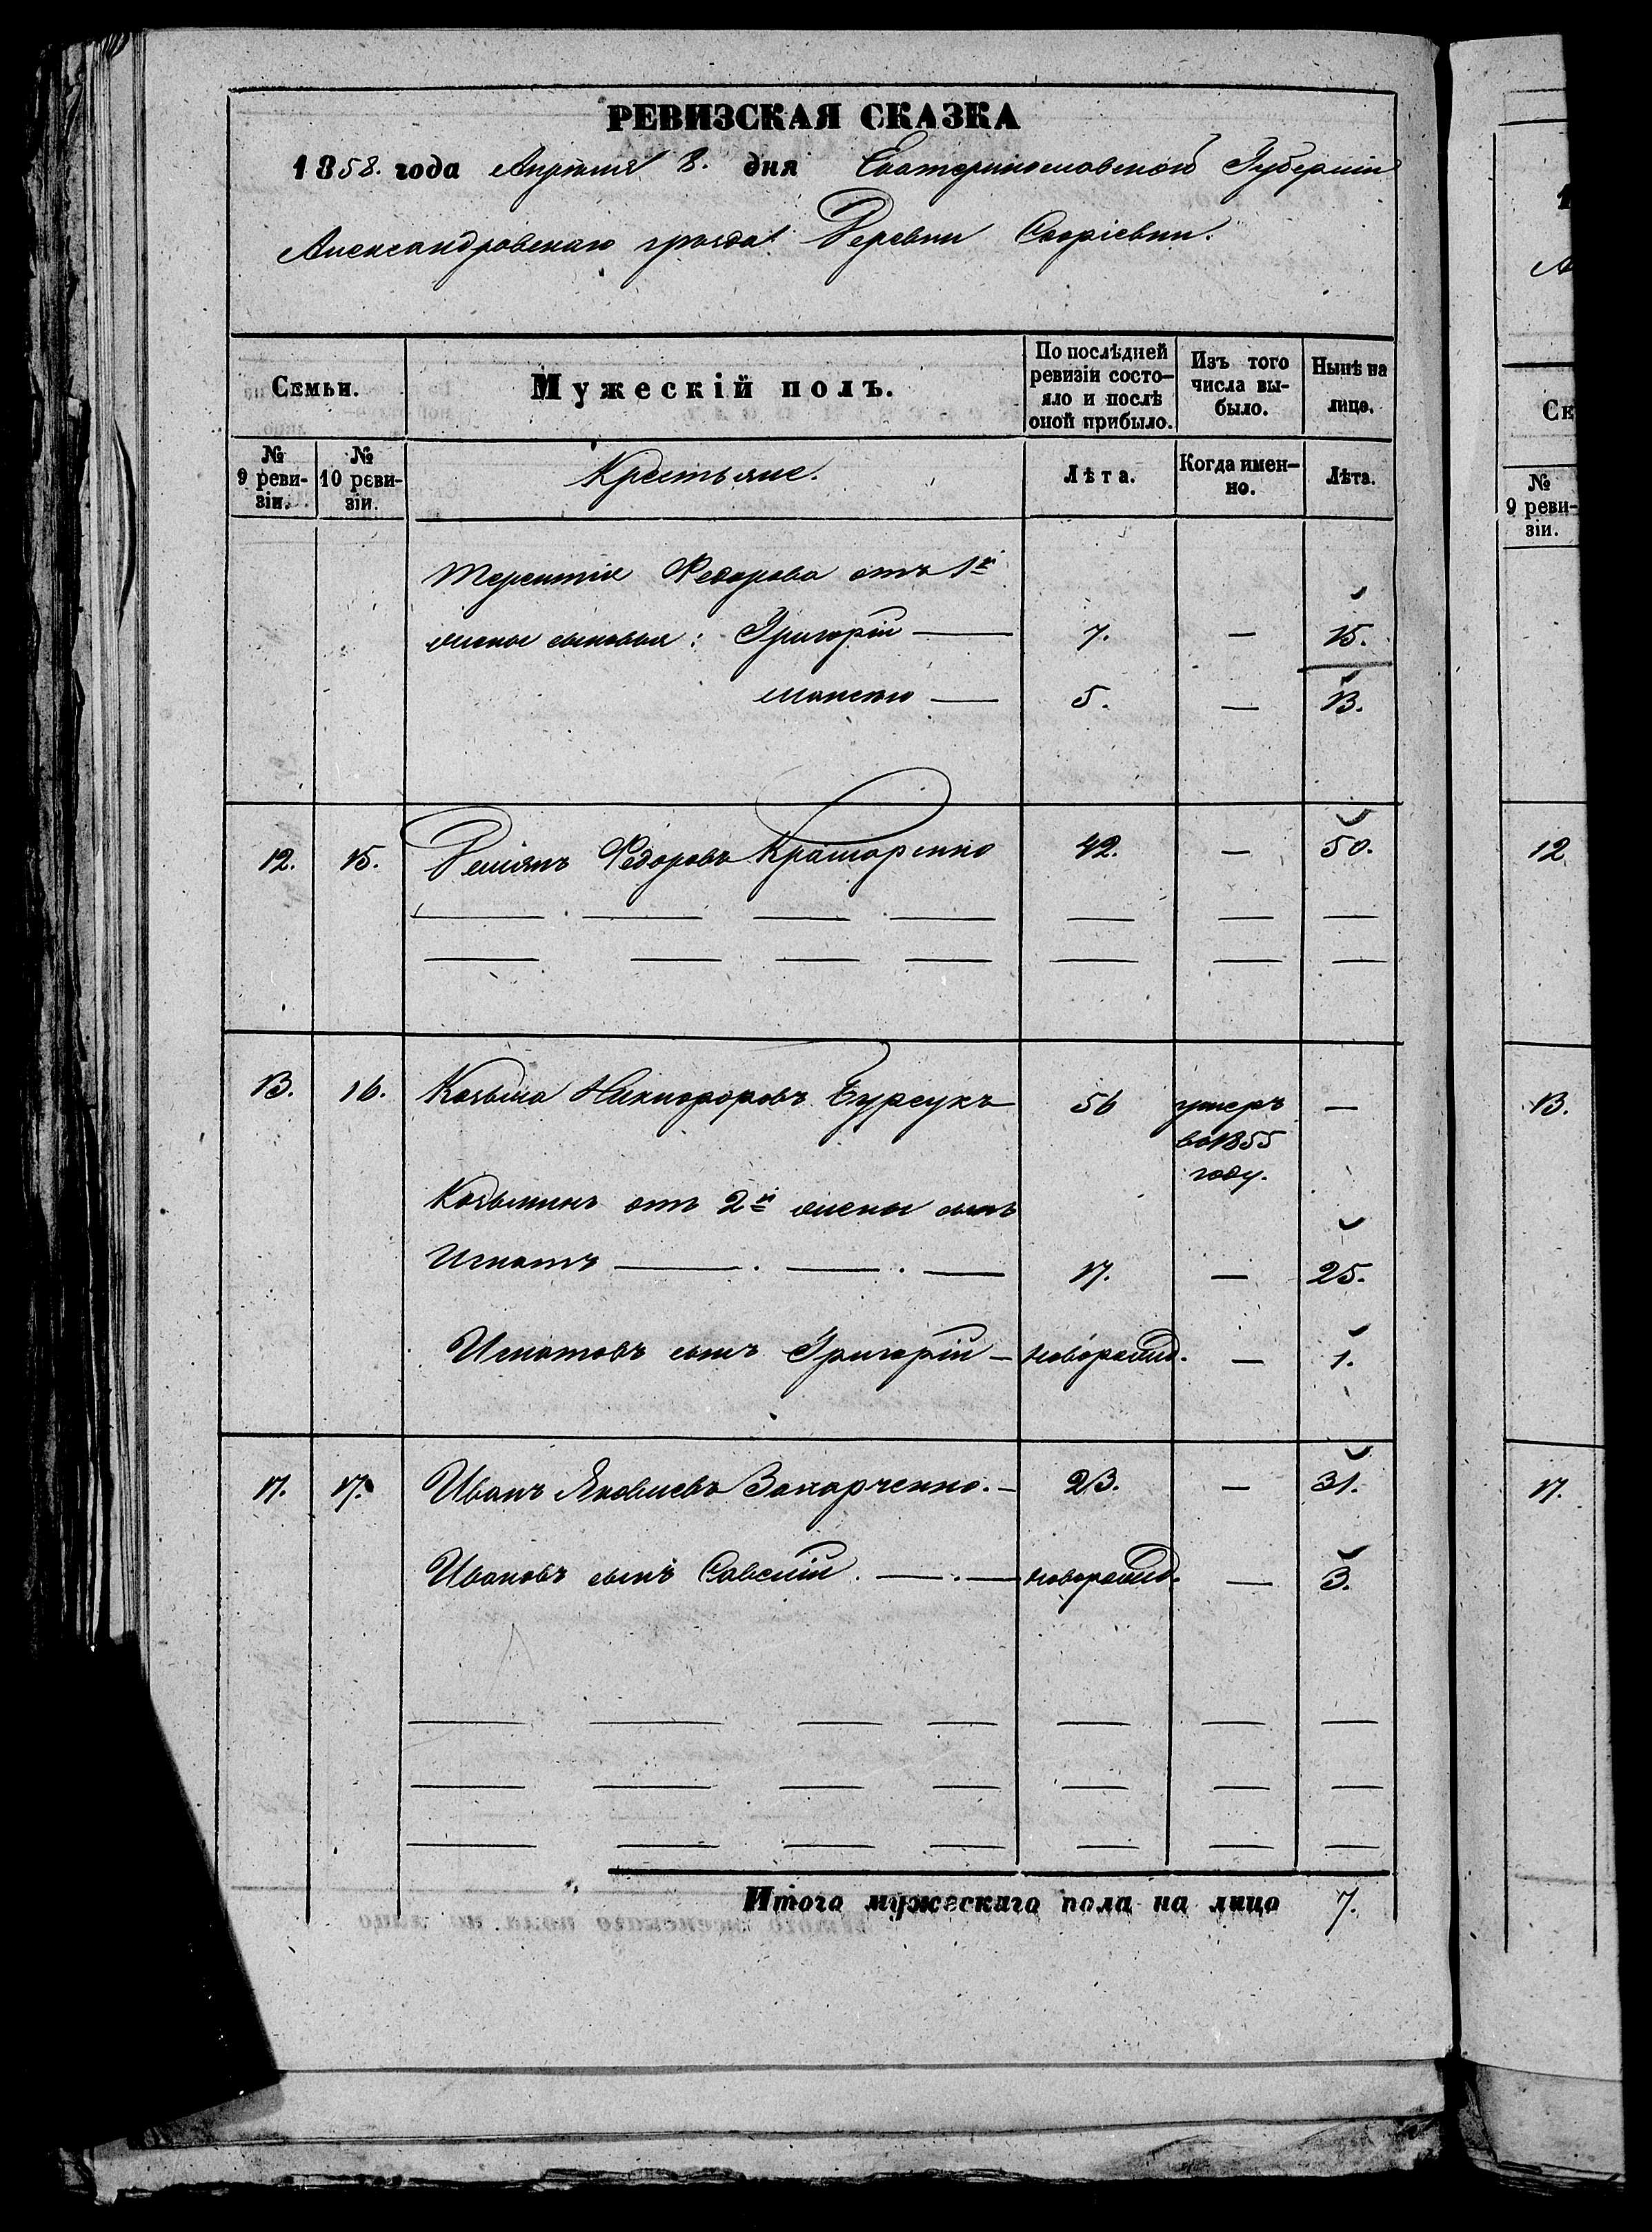 РЕВИЗСКАЯ СКАЗКА
1858. года Апрѣля 8. дня Екатеринославской Губерніи
Александровскаго уѣзда Деревни Софіевки.
Семьи.
Мужескій полъ.
По послѣдней ревизіи состо-яло и послѣ оной прибыло.
Изъ того числа вы-было.
Нынѣ на лицо.
№ 9 реви-зіи.
№ 10 реви-зіи.
Крестьяне.
Лѣта.
Когда имен-но.
Лѣта.
Терентія Федорова отъ 1й
жены сыновья: Григорій — 7. — 15.
Моисей — 5. — 13.
12. 15. Деміянъ Федоровъ Крамаренко 42. — 50.
13. 16. Козьма Никифоровъ Бурсукъ 56 умеръ —
во 1855
году.
Козьминъ отъ 2й жены сынъ
Игнатъ — . — . — 17. — 25.
Игнатовъ сынъ Григорій — новорожд. — 1.
17. 17. Иванъ Яковлевъ Захарченко. — 23. — 31.
Ивановъ сынъ Савелій . — . — новорожд. — 3.
Итого мужескаго пола на лицо 7.
Се
№ 9 реви-зіи.
12
13.
17.